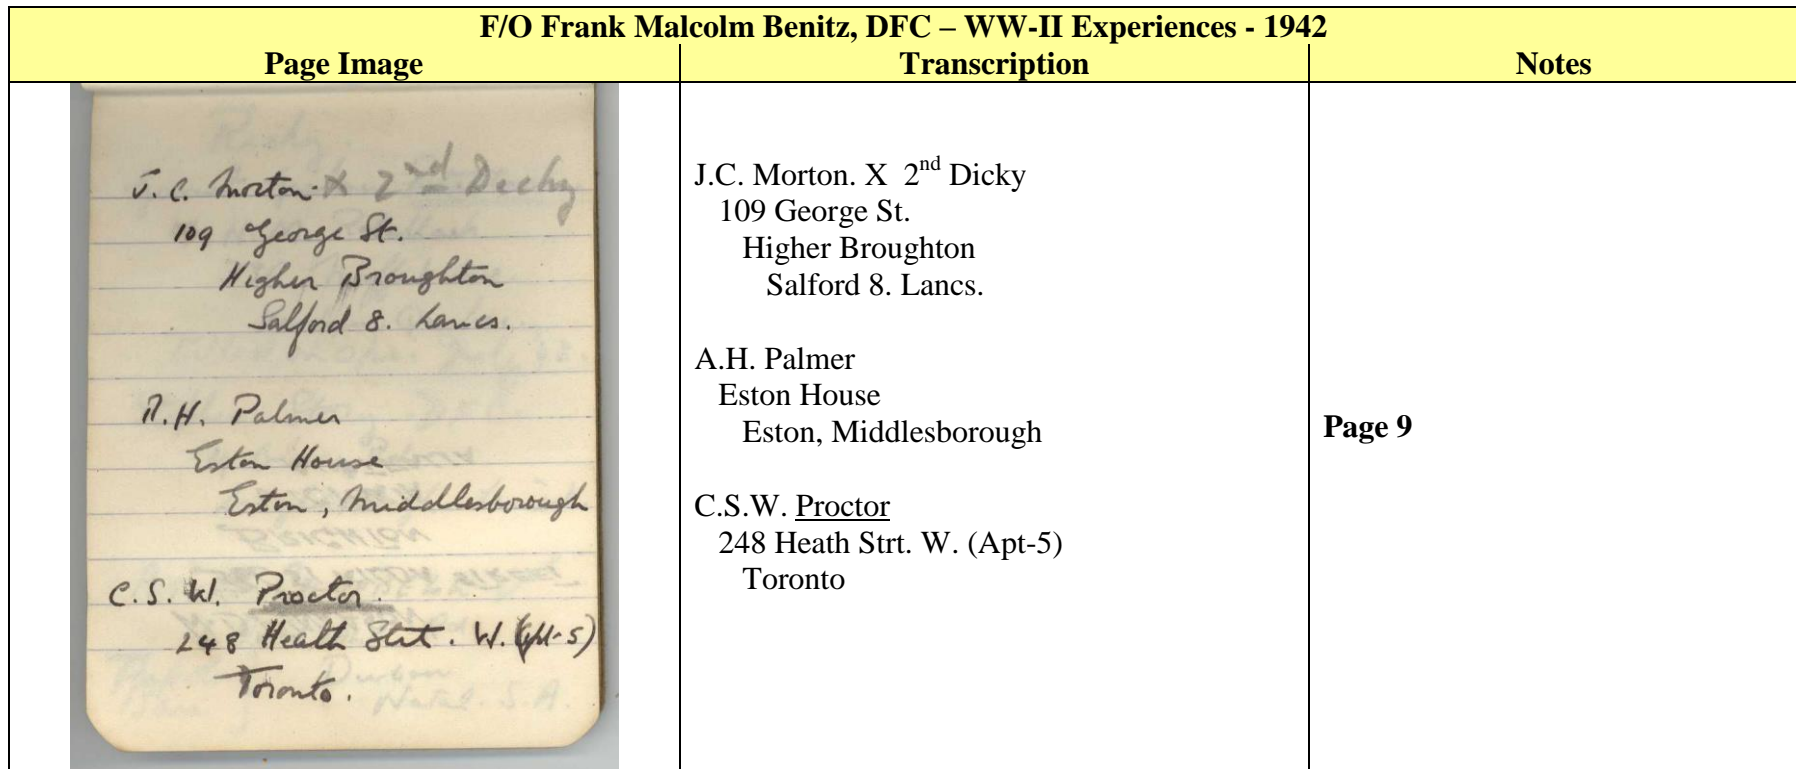 F/O Frank Malcolm Benitz, DFC – WW-II Experiences - 1942
Page Image
Transcription
Notes
J. C. Morton. X 2nd Dicky
109 George St.
Higher Broughton
Salford 8. Lancs.
A.H. Palmer
Eston House
Eston, Middlesborough
C.S.W. Proctor.
248 Heath Strt. W. (Apt-5)
Toronto.
J.C. Morton. X 2nd Dicky
109 George St.
Higher Broughton
Salford 8. Lancs.
A.H. Palmer
Eston House
Eston, Middlesborough
C.S.W. Proctor
248 Heath Strt. W. (Apt-5)
Toronto
Page 9